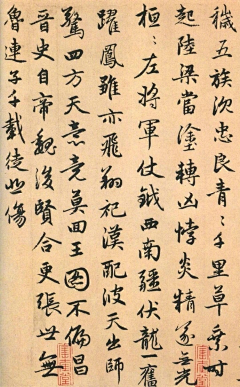 穢五族次忠良青〻千里草乘时
起陸梁當塗轉凶悖炎精遂無光
桓〻左將軍仗鉞西南疆伏龍一奮
躍鳳雛亦飛翔祀漢配彼天出師
驚四方天意竟莫回王圖不偏昌
晉史自帝魏後賢合更張世無
魯連子千載徒悲傷